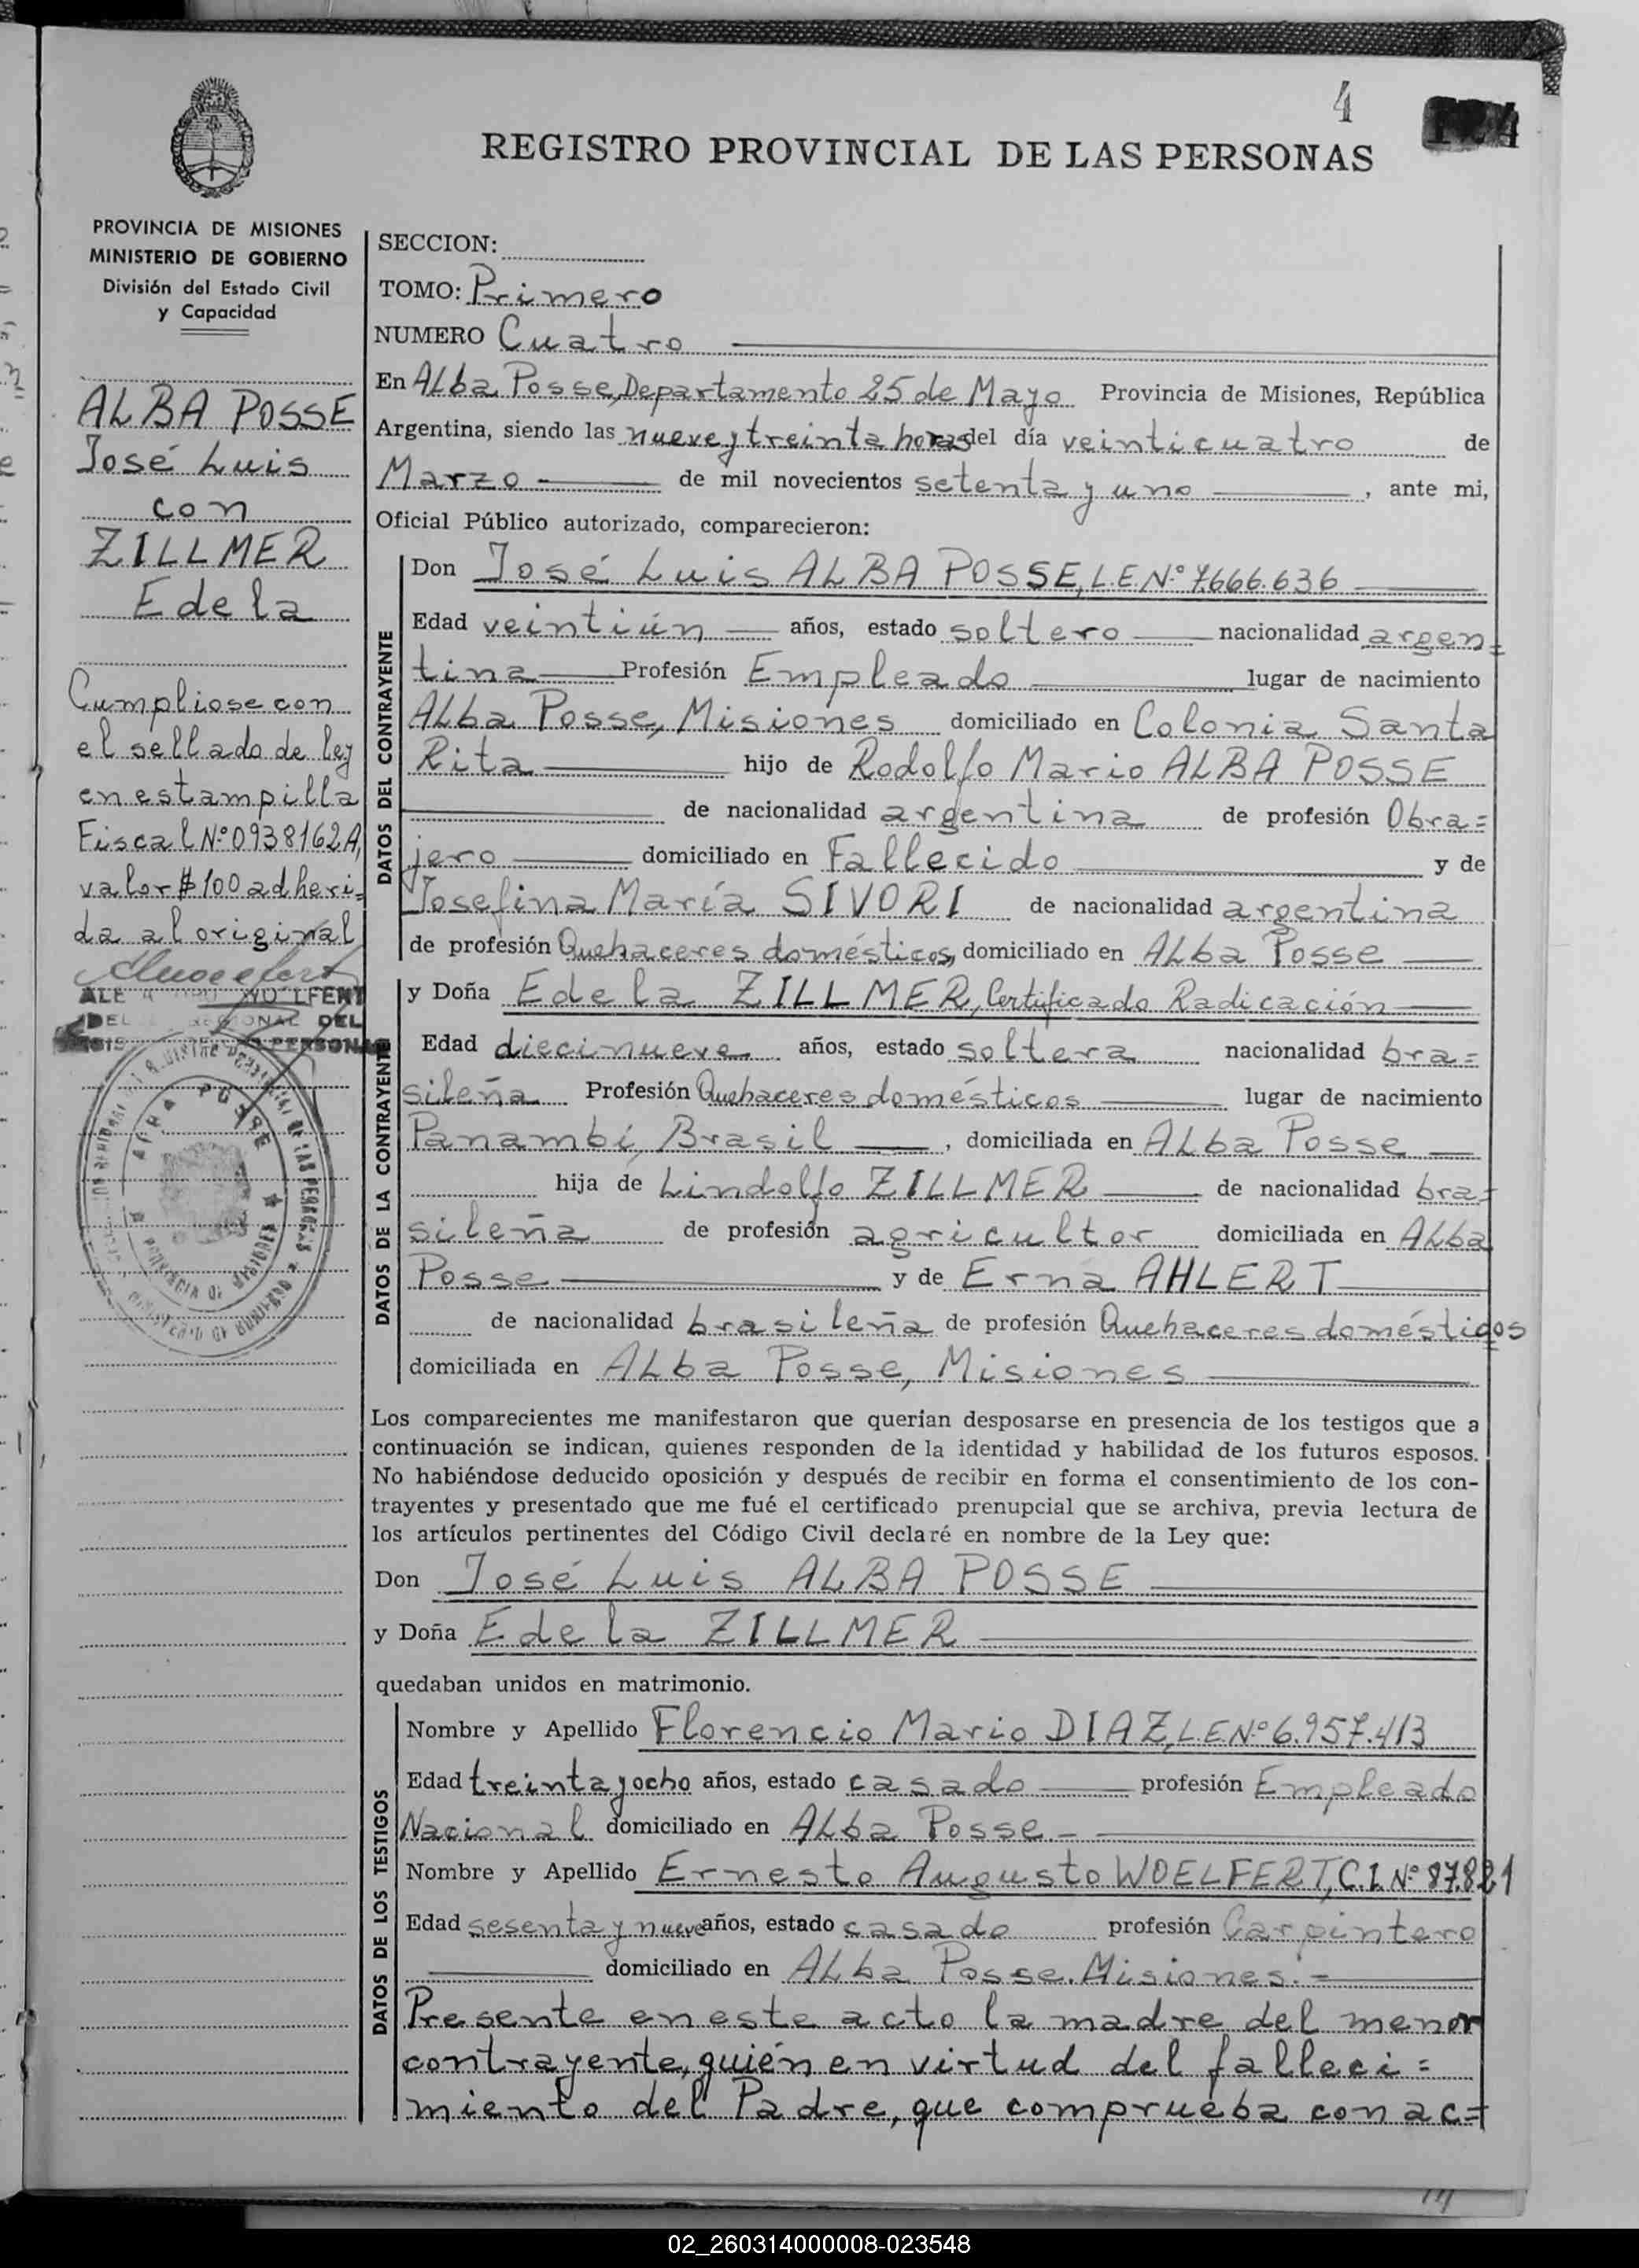 4
REGISTRO PROVINCIAL DE LAS PERSONAS
PROVINCIA DE MISIONES
MINISTERIO DE GOBIERNO
División del Estado Civil
y Capacidad
ALBA POSSE
José Luis
con
ZILLMER
Edela
Cumpliose con
el sellado de ley
en estampilla
Fiscal Nº 0938162A,
valor $ 100 adheri=
da al original
SECCION:
TOMO: Primero
NUMERO Cuatro
En Alba Posse, Departamento 25 de Mayo Provincia de Misiones, República
Argentina, siendo las nueve y treinta horas del día veinticuatro de
Marzo de mil novecientos setenta y uno, ante mi,
Oficial Público autorizado, comparecieron:
DATOS DEL CONTRAYENTE
Don José Luis ALBA POSSE, L.E.Nº 7.666.636
Edad veintiún años, estado soltero nacionalidad argen=
tina Profesión Empleado lugar de nacimiento
Alba Posse, Misiones domiciliado en Colonia Santa
Rita hijo de Rodolfo Mario ALBA POSSE
de nacionalidad argentina de profesión Obra=
jero domiciliado en Fallecido y de
Josefina María SIVORI de nacionalidad argentina
de profesión Quehaceres domésticos, domiciliado en Alba Posse
DATOS DE LA CONTRAYENTE
y Doña Edela ZILLMER, Certificado Radicación
Edad diecinueve años, estado soltera nacionalidad bra=
sileña Profesión Quehaceres domésticos lugar de nacimiento
Panambí, Brasil, domiciliada en Alba Posse
hija de Lindolfo ZILLMER de nacionalidad bra=
sileña de profesión agricultor domiciliada en Alba
Posse y de Erna AHLERT
de nacionalidad brasileña de profesión Quehaceres domésticos
domiciliada en Alba Posse, Misiones
Los comparecientes me manifestaron que querían desposarse en presencia de los testigos que a
continuación se indican, quienes responden de la identidad y habilidad de los futuros esposos.
No habiéndose deducido oposición y después de recibir en forma el consentimiento de los con-
trayentes y presentado que me fué el certificado prenupcial que se archiva, previa lectura de
los artículos pertinentes del Código Civil declaré en nombre de la Ley que:
Don José Luis ALBA POSSE
y Doña Edela ZILLMER
quedaban unidos en matrimonio.
DATOS DE LOS TESTIGOS
Nombre y Apellido Florencio Mario DIAZ, L.E.Nº 6.957.413
Edad treinta y ocho años, estado casado profesión Empleado
Nacional domiciliado en Alba Posse.-
Nombre y Apellido Ernesto Augusto WOELFERT, C.I.Nº 87.821
Edad sesenta y nueve años, estado casado profesión Carpintero
domiciliado en Alba Posse. Misiones.-
Presente en este acto la madre del menor
contrayente, quién en virtud del falleci=
miento del Padre, que comprueba con ac=
02_260314000008-023548